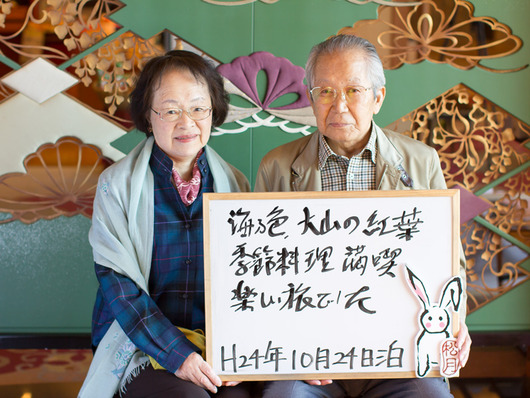 海の色、大山の紅葉
季節料理満喫
楽しい旅でした
H24年10月24日泊
松月